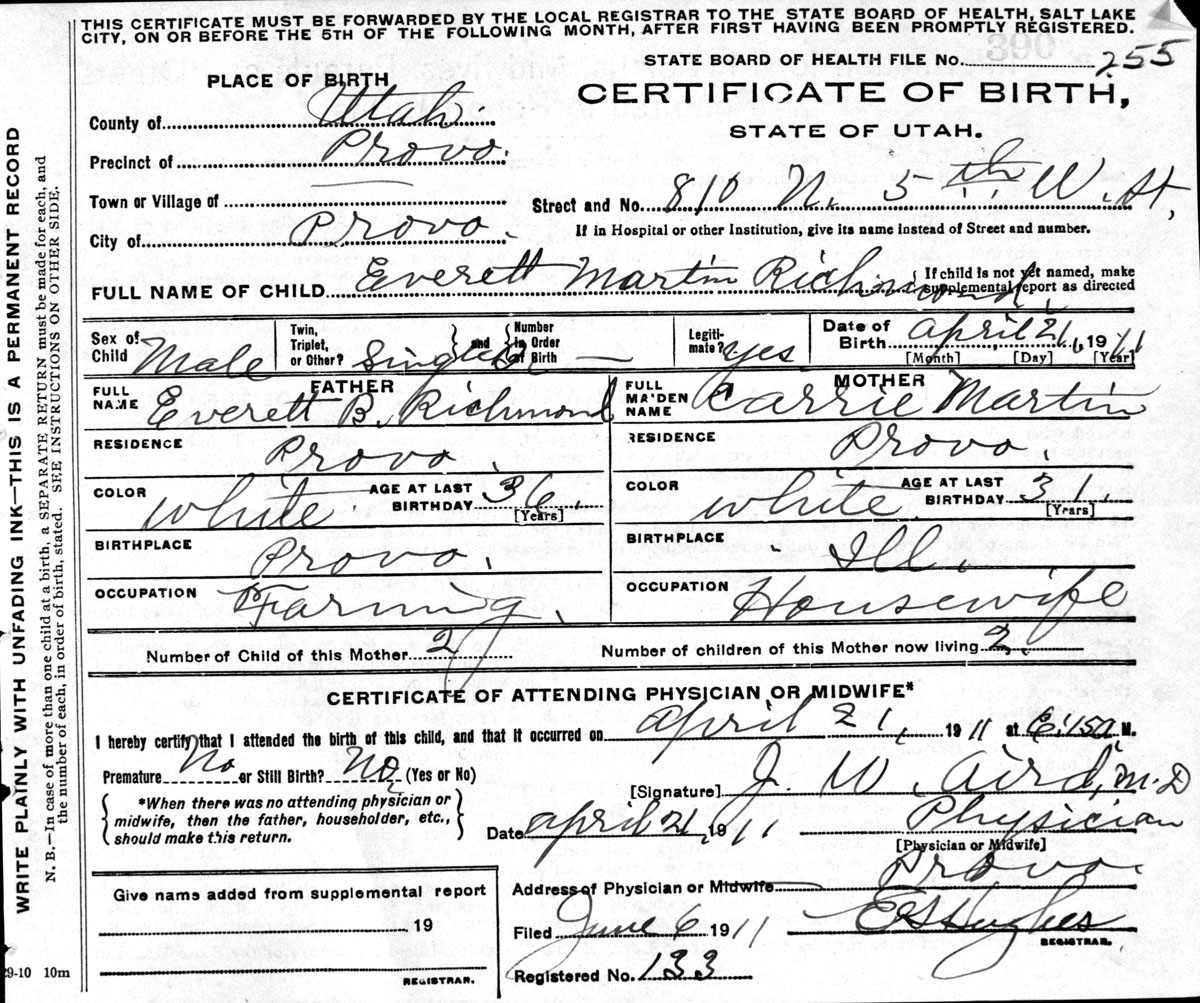 THIS CERTIFICATE MUST BE FORWARDED BY THE LOCAL REGISTRAR TO THE STATE BOARD OF HEALTH, SALT LAKE
CITY, ON OR BEFORE THE 5TH OF THE FOLLOWING MONTH, AFTER FIRST HAVING BEEN PROMPTLY REGISTERED.
STATE BOARD OF HEALTH FILE No. 255
PLACE OF BIRTH
CERTIFICATE OF BIRTH,
STATE OF UTAH.
County of Utah.
Precinct of Provo.
Town or Village of
Street and No. 810 N. 5th W. St,
City of Provo.
If in Hospital or other Institution, give its name instead of Street and number.
FULL NAME OF CHILD Everett Martin Richmond,
If child is not yet named, make
supplemental report as directed
Sex of Child Male
Twin, Triplet, or Other? Single
and Number in Order of Birth —
Legitimate? yes
Date of Birth april 21, 1911
[Month] [Day] [Year]
FATHER
FULL NAME Everett B. Richmond
MOTHER
FULL MAIDEN NAME Carrie Martin
RESIDENCE Provo.
RESIDENCE Provo.
COLOR white
AGE AT LAST BIRTHDAY 36.
[Years]
COLOR white
AGE AT LAST BIRTHDAY 31.
[Years]
BIRTHPLACE Provo,
BIRTHPLACE Ill.
OCCUPATION Farming.
OCCUPATION Housewife
Number of Child of this Mother 2
Number of children of this Mother now living 2.
CERTIFICATE OF ATTENDING PHYSICIAN OR MIDWIFE*
I hereby certify that I attended the birth of this child, and that it occurred on april 21, 1911 at 6:15a. M.
Premature No or Still Birth? No (Yes or No)
*When there was no attending physician or
midwife, then the father, householder, etc.,
should make this return.
[Signature] J. W. Aird, M.D
Date april 21, 1911
Physician
[Physician or Midwife]
Address of Physician or Midwife Provo.
Give name added from supplemental report
19
REGISTRAR.
Filed June 6 1911
E S Hughes
REGISTRAR.
Registered No. 133
29-10 10m
WRITE PLAINLY WITH UNFADING INK—THIS IS A PERMANENT RECORD
N. B.—In case of more than one child at a birth, a SEPARATE RETURN must be made for each, and
the number of each, in order of birth, stated. SEE INSTRUCTIONS ON OTHER SIDE.